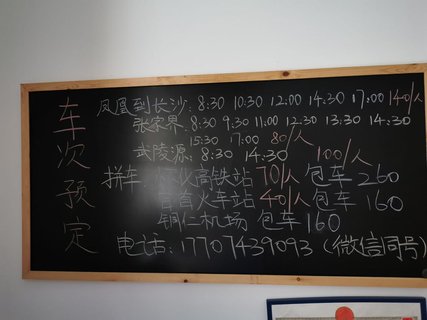 车次预定
凤凰到长沙:8:30 10:30 12:00 14:30 17:00 140/人
张家界:8:30 9:30 11:00 12:30 13:30 14:30
15:30 17:00 80/人
武陵源:8:30 14:30 100/人
拼车:怀化高铁站 70/人 包车 260
吉首火车站 40/人 包车 160
铜仁机场 包车 160
电话:17707439093(微信同号)